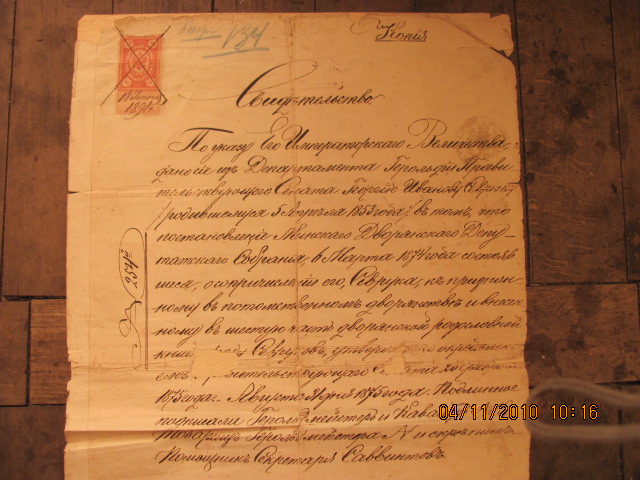 Копія
134
Свидѣтельство.
По указу Его Императорскаго Величества,
дано сіе изъ Департамента Герольдіи Правительствующаго
Сената Георгію Иванову Севруку
/родившемуся 5 Апрѣля 1853 года/ въ томъ, что
постановленіе Минскаго Дворянскаго Депу-
татскаго Собранія, 6 Марта 1874 года состояв-
шееся, о сопричисленіи его, Севрука, къ признан-
ному въ потомственномъ дворянствѣ и внесен-
ному въ шестую часть дворянской родословной
книги роду Севруковъ, утверждено
Сената
1875 года. Августа дня 1875 года. Подлинное
Герольдмейстеръ и
Товарищъ Герольдмейстера и скрѣпилъ
Помощникъ Секретаря Саввинтовъ.
04/11/2010 10:16